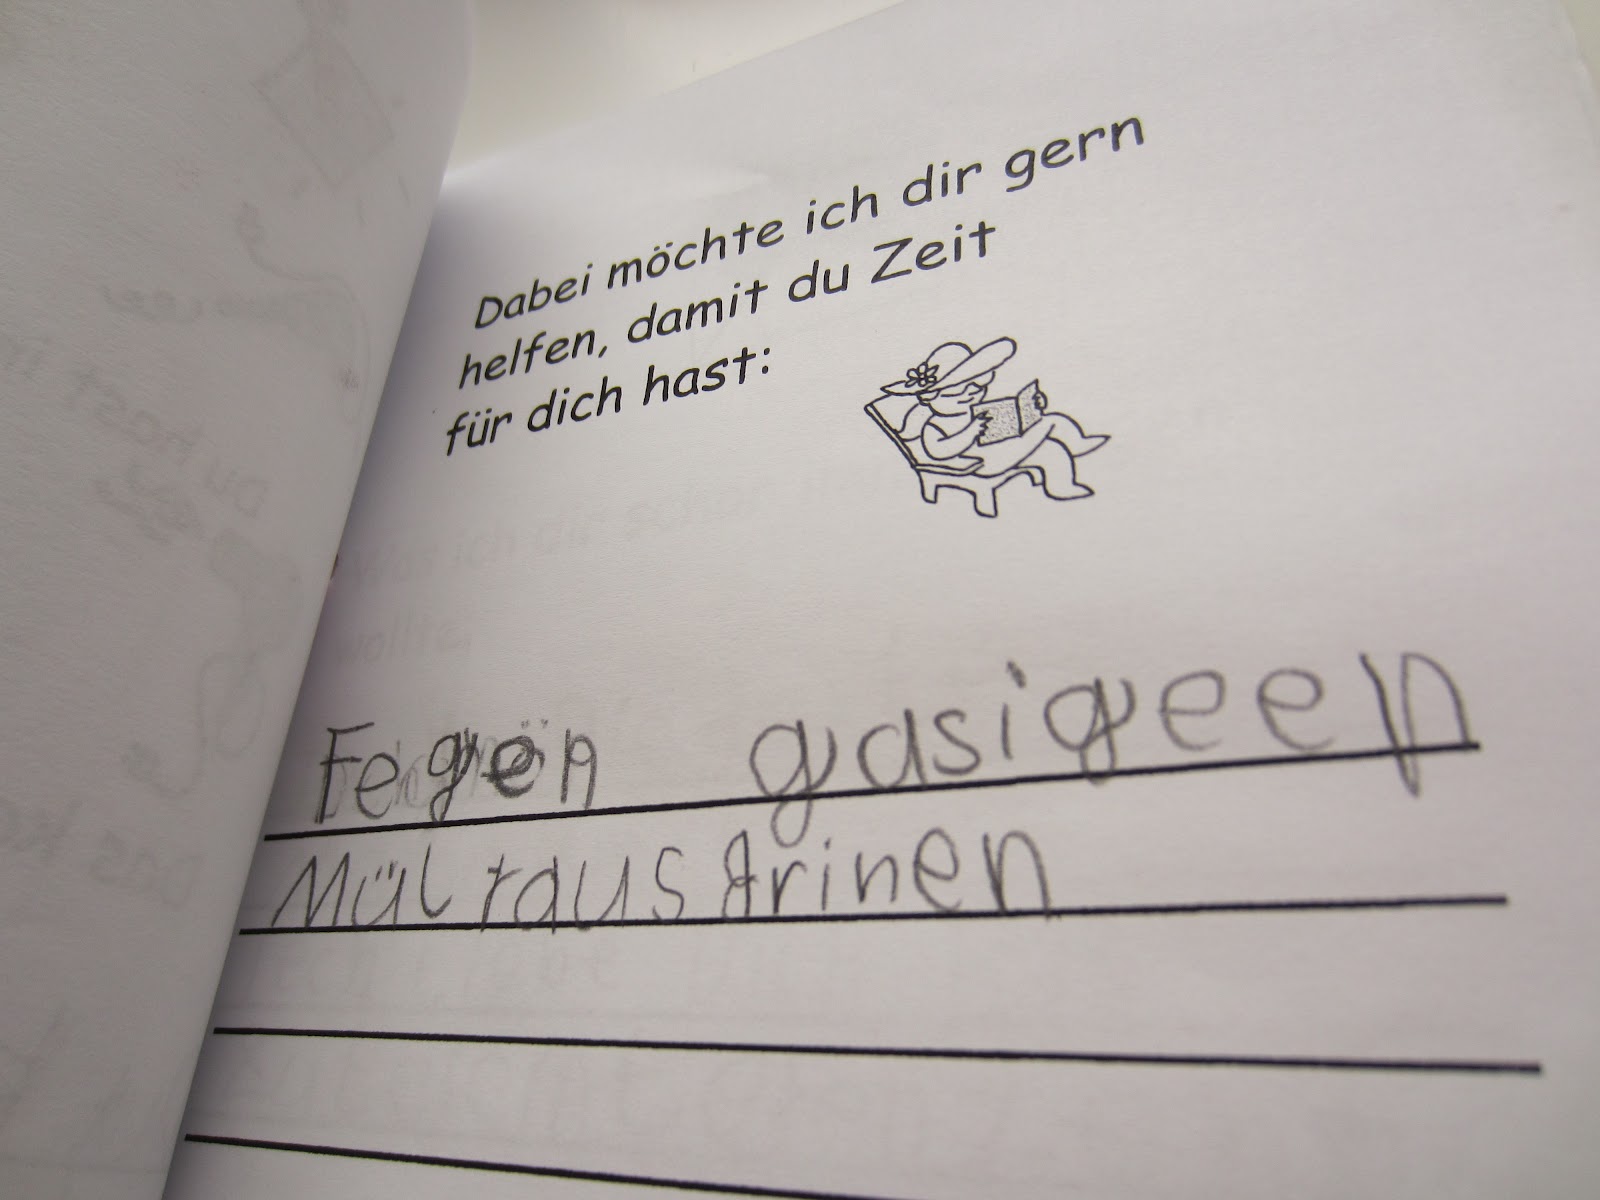 Dabei möchte ich dir gern
helfen, damit du Zeit
für dich hast:
Fegen gasigeen
Mül raus brinen